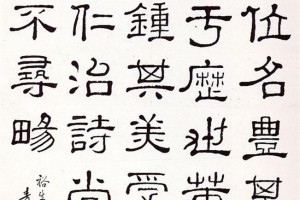 位名豐其
于歷世葉
鍾其美受
仁治詩尚
不尋暢
裕生